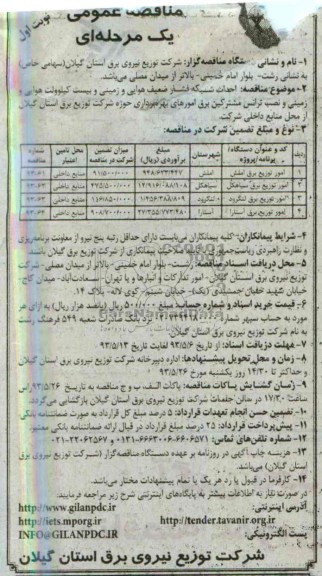 مناقصه عمومی
یک مرحله‌ای
نوبت اول
۱- نام و نشانی دستگاه مناقصه‌گزار: شرکت توزیع نیروی برق استان گیلان(سهامی خاص)
به نشانی رشت- بلوار امام خمینی- بالاتر از میدان مصلی می‌باشد.
۲-موضوع مناقصه: احداث شبکه فشار ضعیف هوایی و زمینی و بیست کیلوولت هوایی و
زمینی و نصب ترانس مشترکین برق امورهای بهره‌برداری حوزه شرکت توزیع برق استان گیلان
از محل منابع داخلی شرکت.
۳-نوع و مبلغ تضمین شرکت در مناقصه:
ردیف کد و عنوان دستگاه/ برنامه/ پروژه شهرستان مبلغ برآوردی (ریال) میزان تضمین شرکت در مناقصه محل تامین اعتبار شماره مناقصه
۱ امور توزیع برق املش املش منابع داخلی
۲ امور توزیع برق سیاهکل سیاهکل منابع داخلی
۳ امور توزیع برق لنگرود لنگرود منابع داخلی
۴ امور توزیع برق آستارا آستارا منابع داخلی
۴- شرایط پیمانکاران: کلیه پیمانکاران می‌بایست دارای حداقل رتبه پنج نیرو از معاونت برنامه‌ریزی
و نظارت راهبردی ریاست جمهوری صلاحیت پیمانکاری از شرکت توزیع برق گیلان باشند.
۵- محل دریافت اسناد مناقصه: رشت- بلوار امام خمینی- بالاتر از میدان مصلی- شرکت
توزیع نیروی برق استان گیلان- امور تدارکات و انبارها و یا تهران- سعادت‌آباد- میدان کاج-
خیابان شهید خلیل حسینی کوی لاله- پلاک ۱۴.
۶- قیمت خرید اسناد و شماره حساب: مبلغ ۵۰۰/۰۰۰ ریال (پانصد هزار ریال) به ازای هر
مورد به حساب سپهر شماره بانک صادرات شعبه ۵۴۹ فرهنگ رشت
به نام شرکت توزیع نیروی برق استان گیلان.
۷- مهلت دریافت اسناد: از تاریخ ۹۳/۵/۶ لغایت تاریخ ۹۳/۵/۱۳
۸- زمان و محل تحویل پیشنهادها: اداره دبیرخانه شرکت توزیع نیروی برق استان گیلان
و حداکثر تا ۱۴/۳۰ روز یکشنبه مورخ ۹۳/۵/۲۶
۹- زمان گشایش پاکات مناقصه: پاکات الف، ب و ج مناقصه به تاریخ ۹۳/۵/۲۶ راس
ساعت ۱۷/۳۰ در سالن جلسات شرکت توزیع نیروی برق استان گیلان بازگشایی می‌گردد.
۱۰- تضمین حسن انجام تعهدات قرارداد: ۵ درصد مبلغ کل قرارداد به صورت ضمانتنامه بانکی.
۱۱- پیش‌پرداخت قرارداد: ۲۵ درصد مبلغ قرارداد در قبال ارائه ضمانتنامه بانکی معتبر.
۱۲- شماره تلفن‌های تماس: ۶۶۰۶۵۷۱-۶۶۶۳۰۰۶-۰۱۳۱ و ۲۲۰۶۲۵۶۷-۰۲۱
۱۳- هزینه چاپ آگهی در روزنامه بر عهده دستگاه مناقصه‌گزار (شرکت توزیع نیروی برق
استان گیلان) می‌باشد.
۱۴- کارفرما در قبول یا رد هر یک یا تمام پیشنهادات مختار می‌باشد.
در صورت نیاز به اطلاعات بیشتر به پایگاه‌های اینترنتی شرح زیر مراجعه فرمایید.
آدرس اینترنتی: http://www.gilanpdc.ir
http://iets.mporg.ir http://tender.tavanir.org.ir
پست الکترونیکی: INFO@GILANPDC.IR
شرکت توزیع نیروی برق استان گیلان